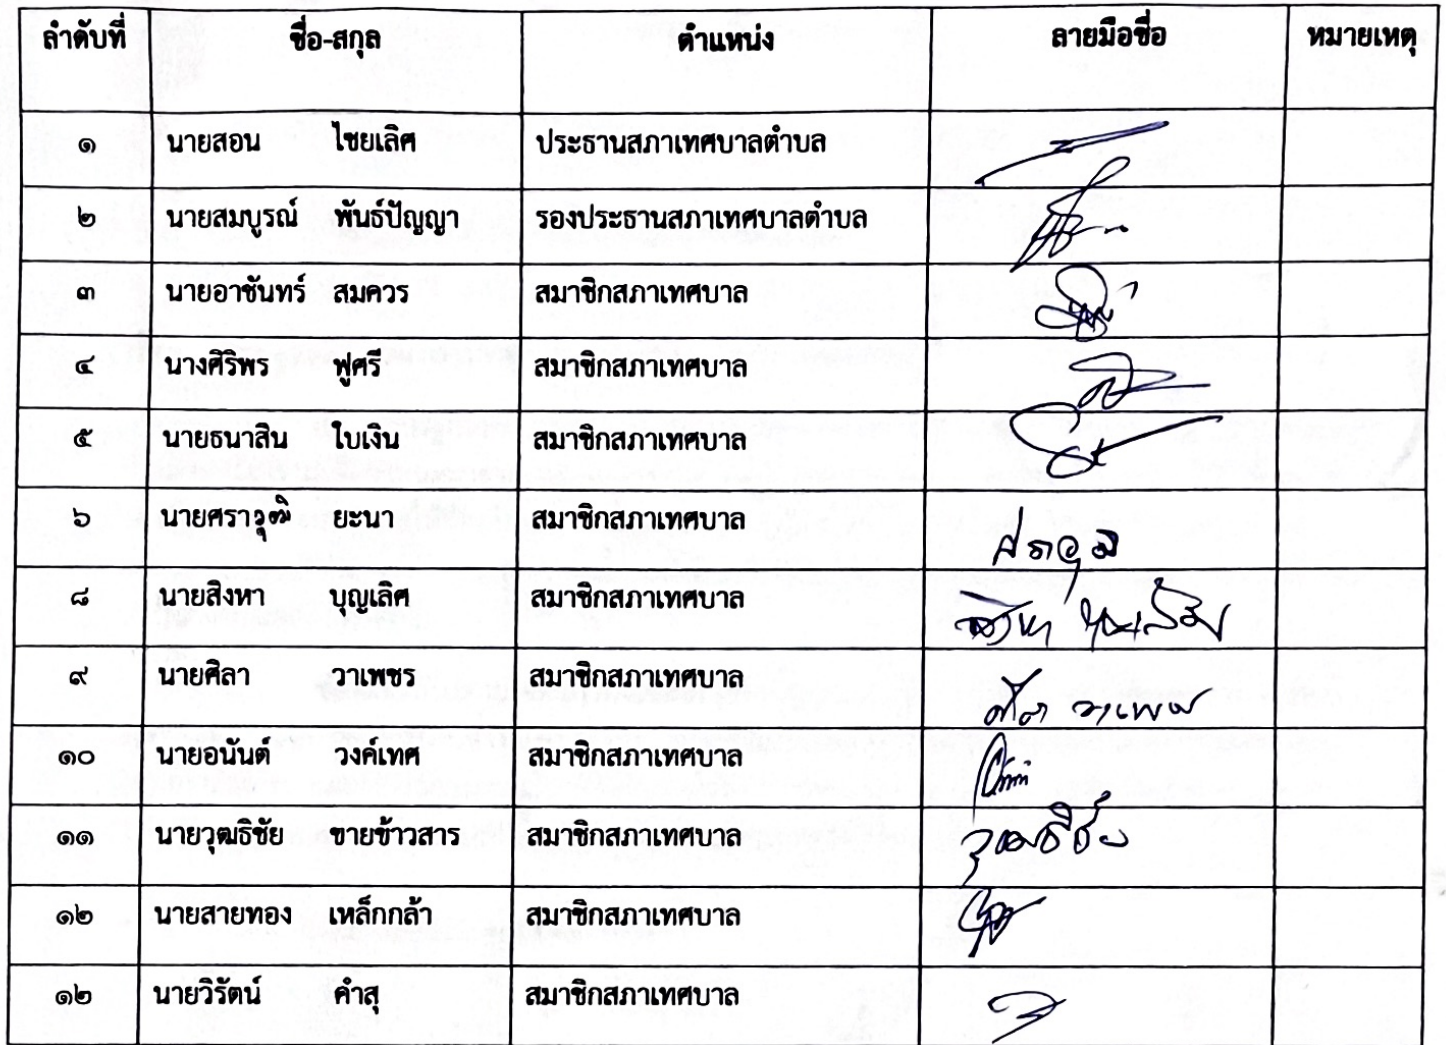 ลำดับที่ ชื่อ-สกุล ตำแหน่ง ลายมือชื่อ หมายเหตุ
๑ นายสอน ไชยเลิศ ประธานสภาเทศบาลตำบล
๒ นายสมบูรณ์ พันธ์ปัญญา รองประธานสภาเทศบาลตำบล
๓ นายอาชันทร์ สมควร สมาชิกสภาเทศบาล
๔ นางศิริพร ฟูศรี สมาชิกสภาเทศบาล
๕ นายธนาสิน ใบเงิน สมาชิกสภาเทศบาล
๖ นายศราวุฒิ ยะนา สมาชิกสภาเทศบาล
๘ นายสิงหา บุญเลิศ สมาชิกสภาเทศบาล
๙ นายศิลา วาเพชร สมาชิกสภาเทศบาล ศิลา วาเพชร
๑๐ นายอนันต์ วงค์เทศ สมาชิกสภาเทศบาล
๑๑ นายวุฒธิชัย ขายข้าวสาร สมาชิกสภาเทศบาล วุฒธิชัย
๑๒ นายสายทอง เหล็กกล้า สมาชิกสภาเทศบาล
๑๒ นายวิรัตน์ คำสุ สมาชิกสภาเทศบาล